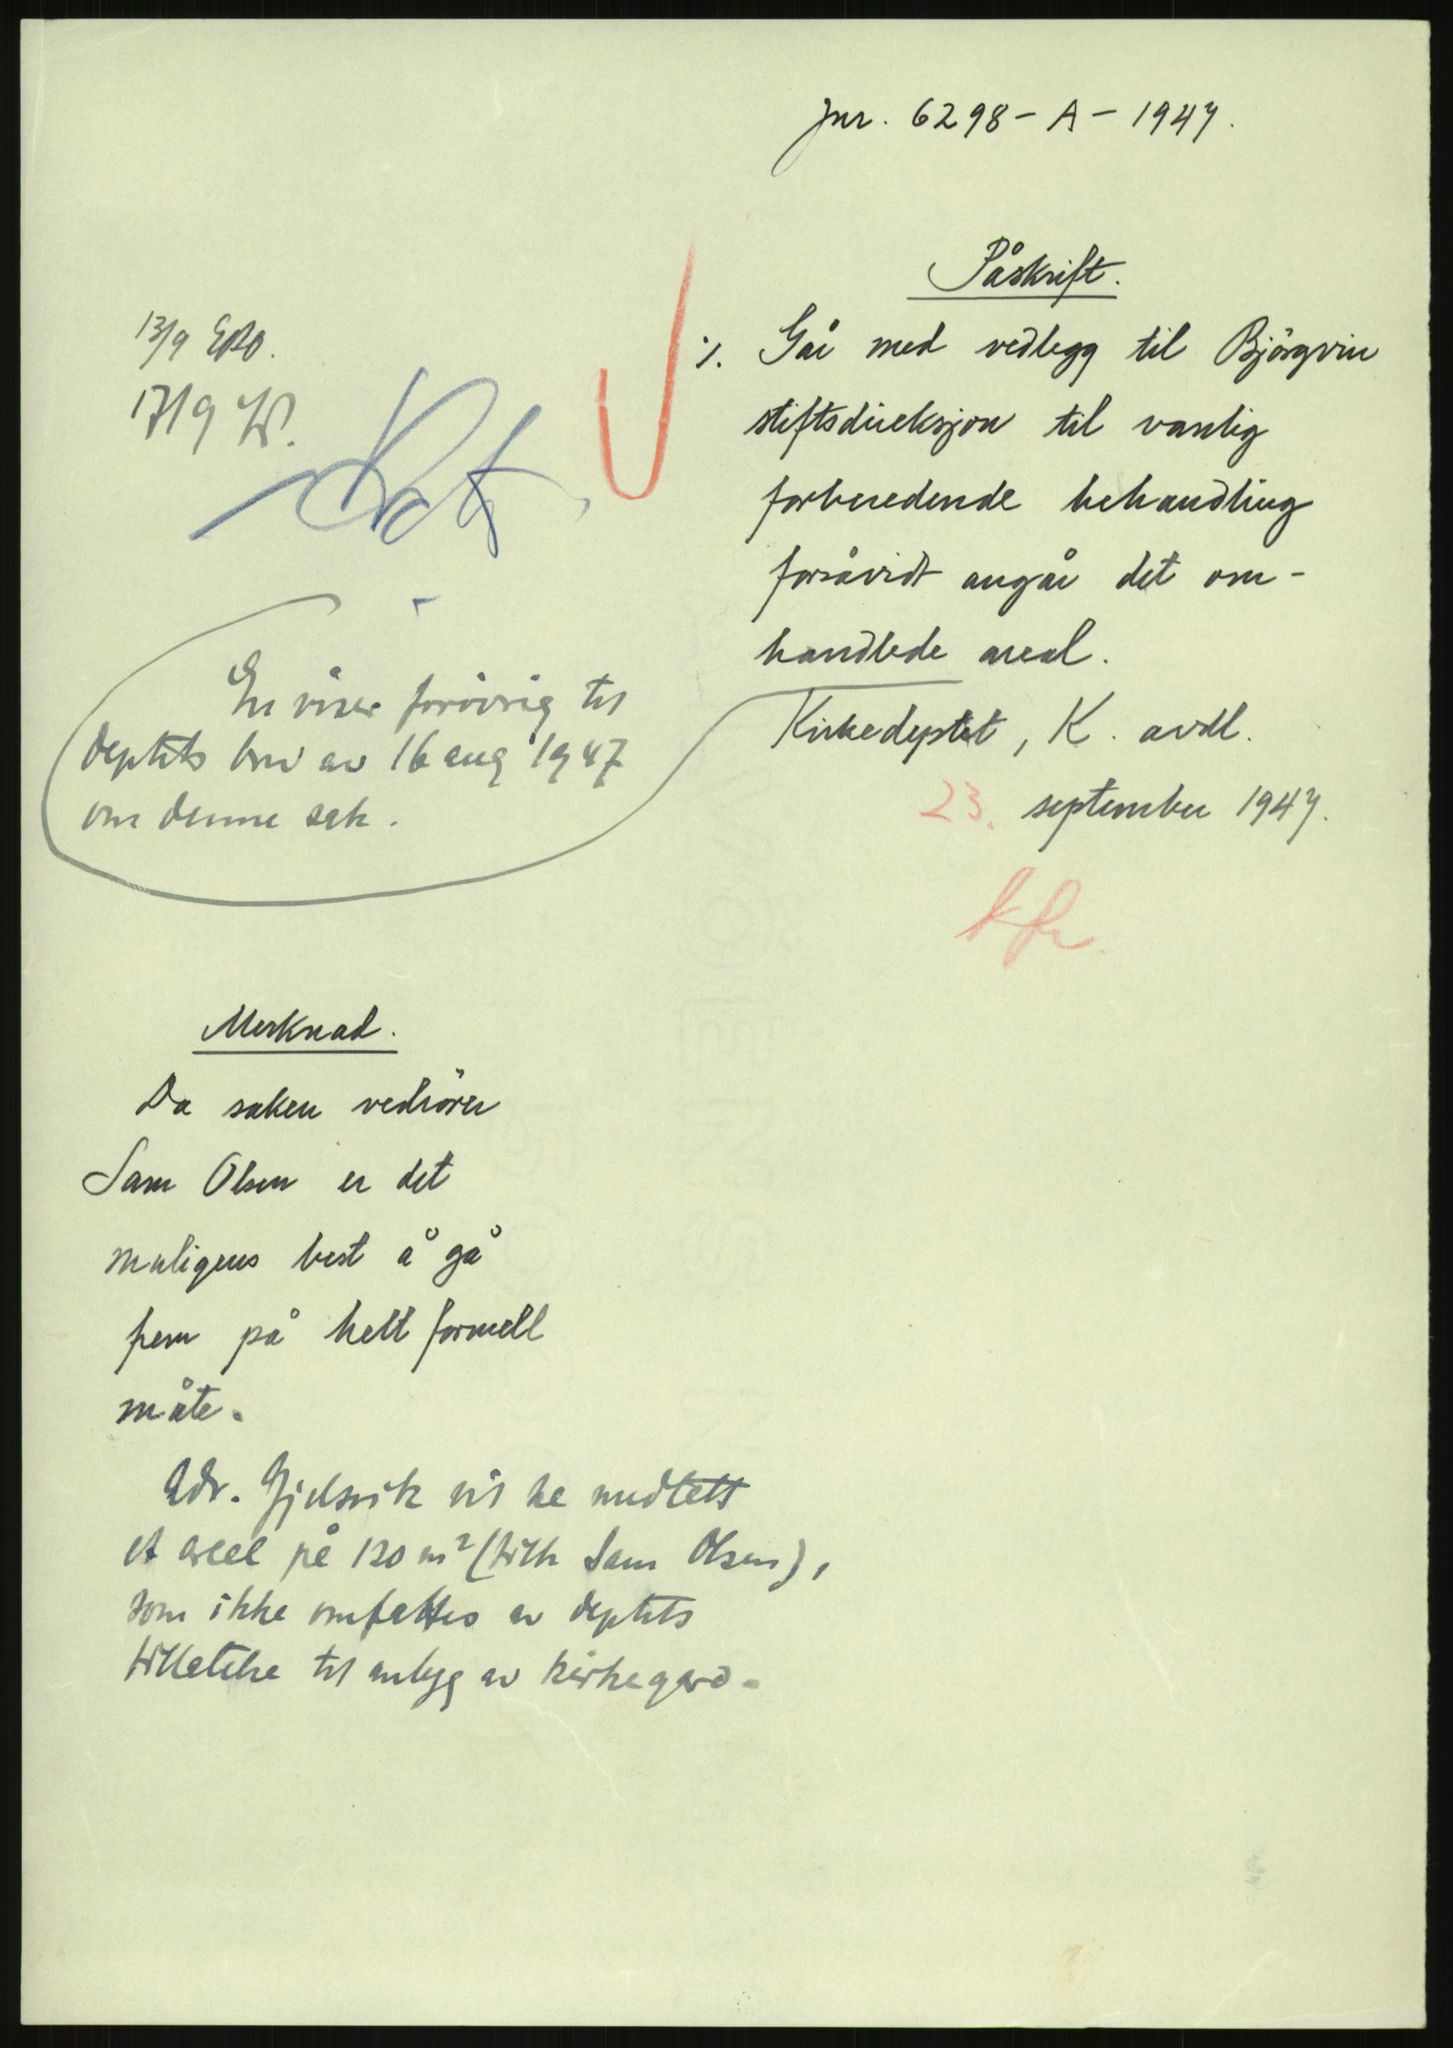 Jnr. 6298 - A - 1947.
Påskrift.
·/. Går med vedlegg til Björgvin
stiftsdireksjon til vanlig
forberedende behandling
forsåvidt angår det om-
handlede areal.
Kirkedeptet, K. avdl.
23. september 1947.
13/9
17/9
En viser forövrig til
deptets brev av 16 aug 1947
om denne sak.
Merknad.
Da saken vedrörer
Sam Olsen er det
muligens best å gå
frem på helt formell
måte.
Adv. Gjelsvik vil ha nedlagt
et areal på 120 m² (tilh Sam Olsen),
som ikke omfattes av deptets
tillatelse til anlegg av kirkegård.